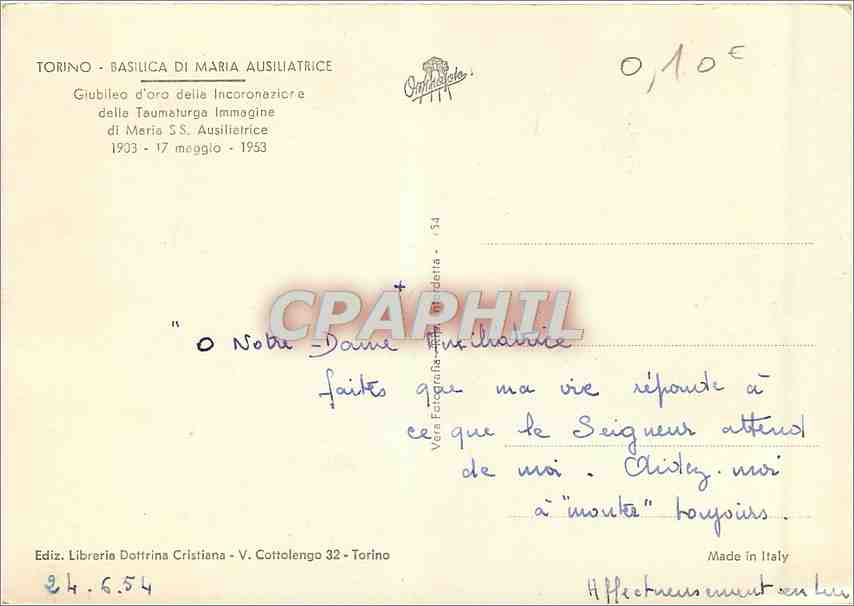 TORINO - BASILICA DI MARIA AUSILIATRICE
Giubileo d'oro della Incoronazione
della Taumaturga Immagine
di Maria SS. Ausiliatrice
1903 - 17 maggio - 1953
Omniafoto
0,10€
Vera Fotografia - Rip. interdetta - 54
CPAPHIL
+
"O Notre-Dame Auxiliatrice
faites que ma vie réponde à
ce que le Seigneur attend
de moi. Aidez-moi
à "monter" toujours.
Ediz. Libreria Dottrina Cristiana - V. Cottolengo 32 - Torino
Made in Italy
24.6.54
Affectueusement en